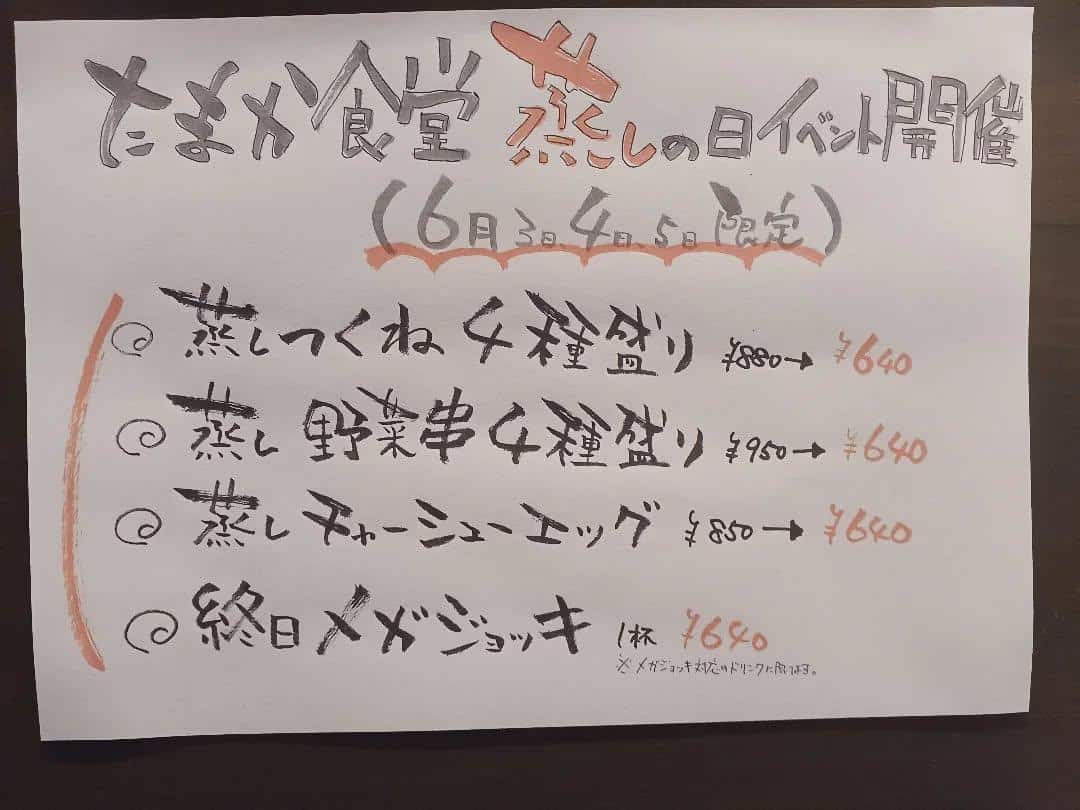 たまか食堂 蒸しの日イベント開催
(6月3日、4日、5日限定)
蒸しつくね4種盛り ¥880→ ¥640
蒸し野菜串4種盛り ¥950→ ¥640
蒸しチャーシューエッグ ¥850→ ¥640
終日メガジョッキ 1杯 ¥640
※メガジョッキ対応のドリンクに限ります。